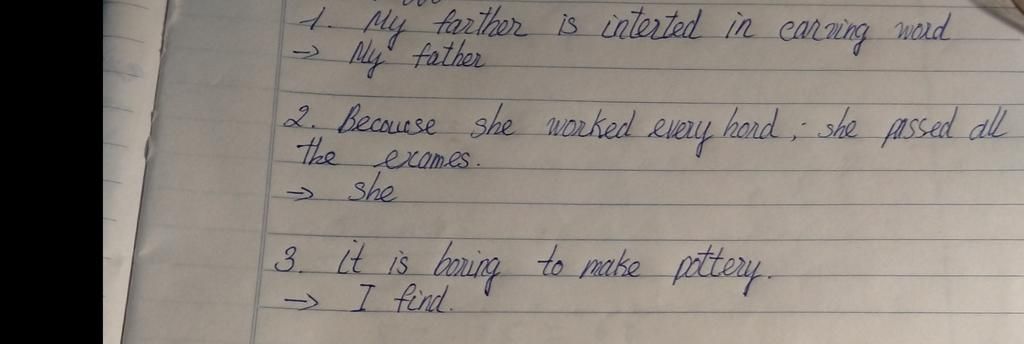 1. My farther is interted in carving word
→ My father
2. Because she worked every hard, she passed all
the exames.
→ she
3. it is boring to make pottery.
→ I find.